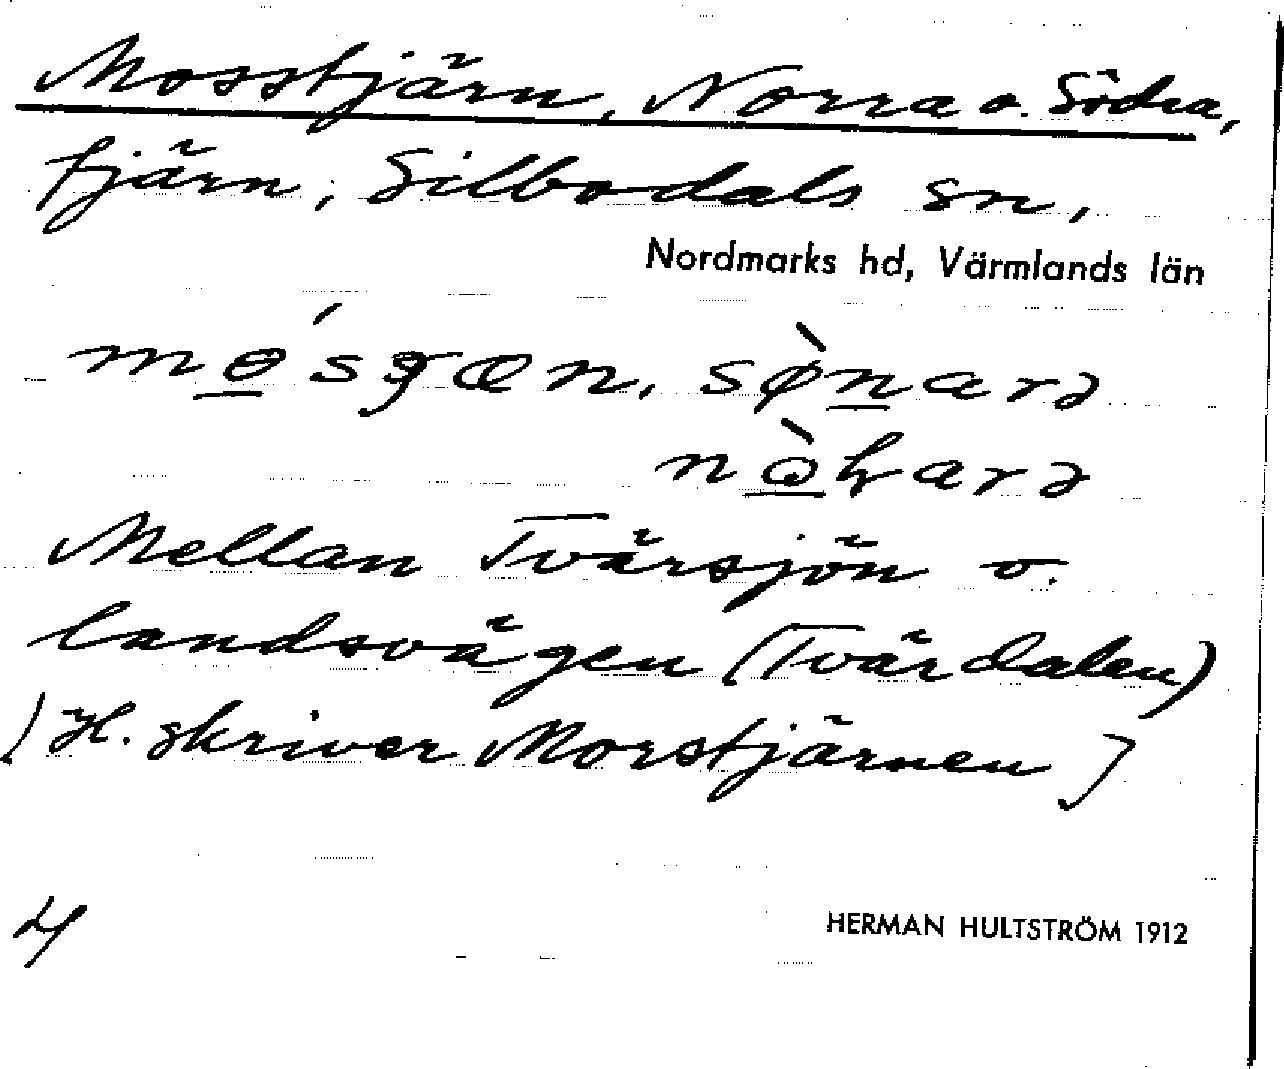 Mosstjärn, Norra o. Södra,
tjärn, Silbodals sn,
Nordmarks hd, Värmlands län
Mellan Tvärsjön o.
landsvägen (Tvärdalen)
[H. skriver Morstjärnen]
4
HERMAN HULTSTRÖM 1912